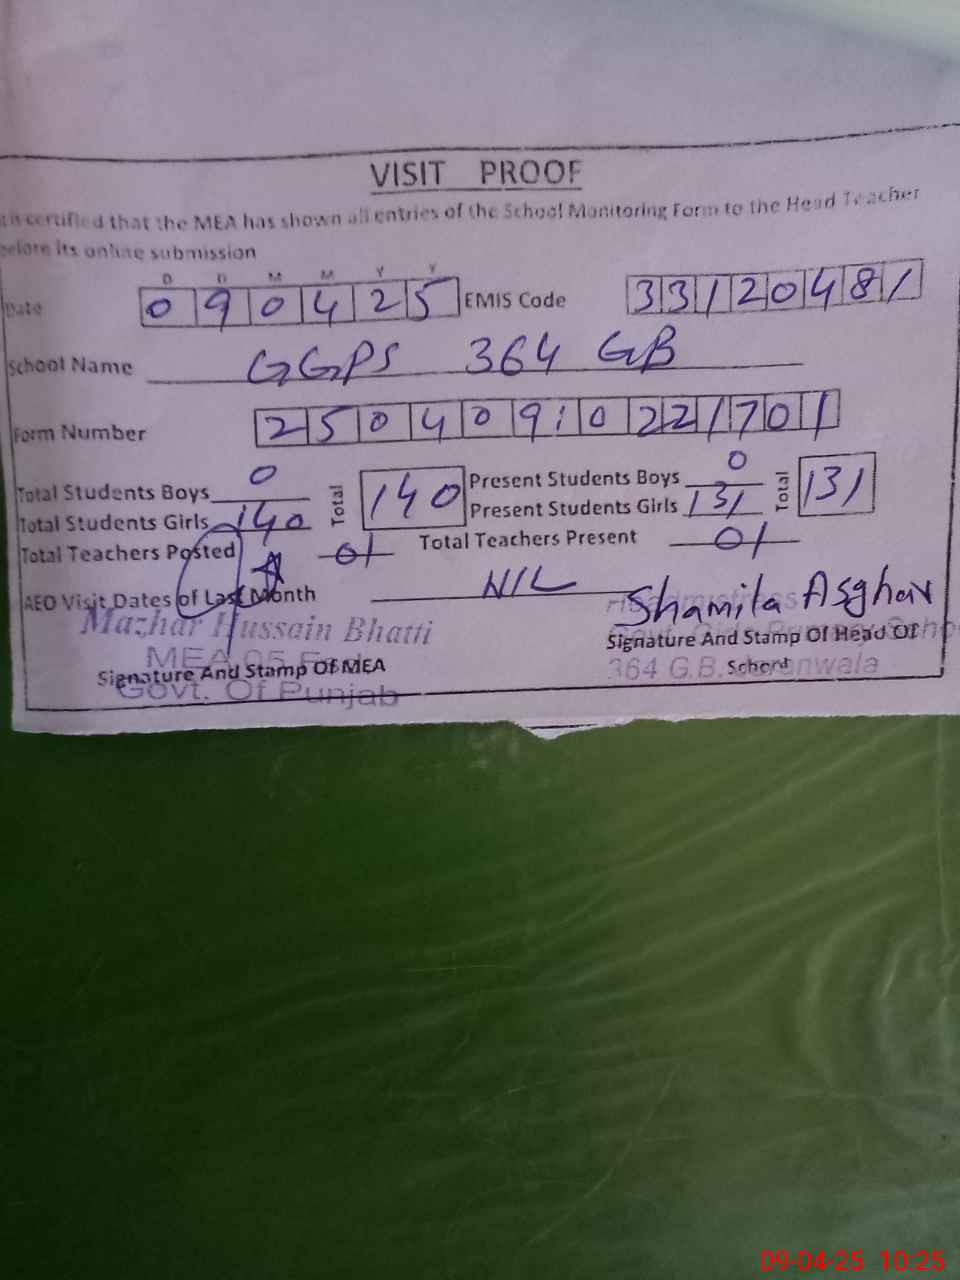 VISIT PROOF
is certified that the MEA has shown all entries of the School Monitoring Form to the Head Teacher
before its online submission
D D M M Y Y
Date 090425 EMIS Code 33120481
School Name GGPS 364 GB
Form Number 25040910221701
Total Students Boys 0 Total 140 Present Students Boys 0 Total 131
Total Students Girls 140 Present Students Girls 131
Total Teachers Posted 01 Total Teachers Present 01
AEO Visit Dates of Last Month NIL Shamila Asghar
Mazhar Hussain Bhatti
MEA 05
Signature And Stamp Of MEA
Govt. Of Punjab
Signature And Stamp Of Head Of
School
364 G.B.
09-04-25 10:25